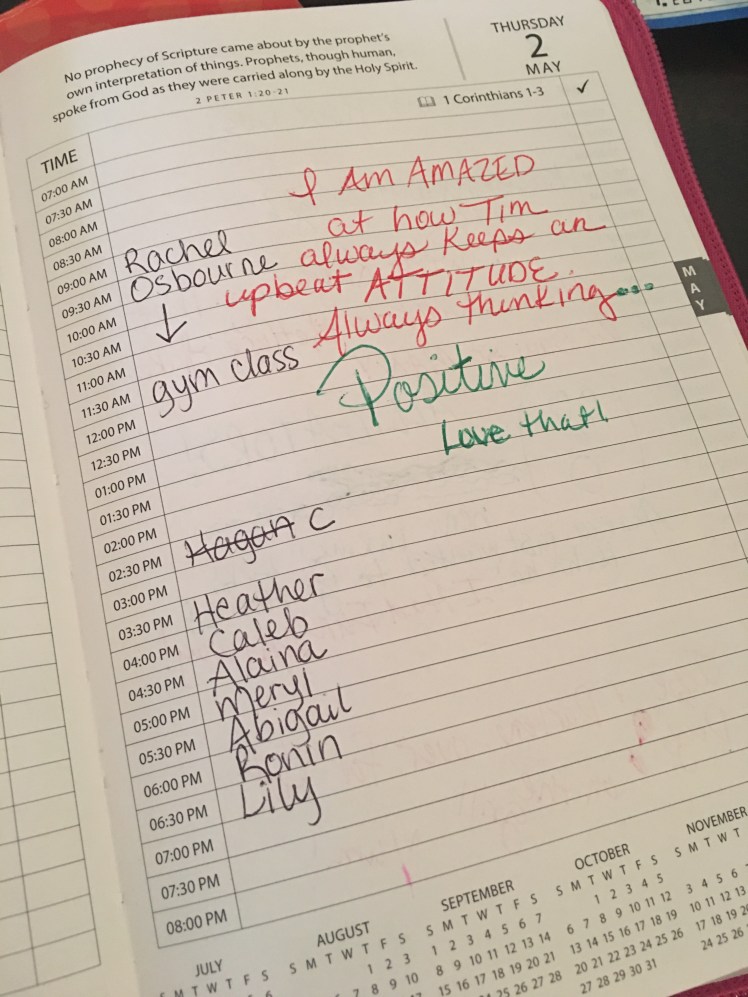 No prophecy of Scripture came about by the prophet's
own interpretation of things. Prophets, though human,
spoke from God as they were carried along by the Holy Spirit.
2 PETER 1:20-21
THURSDAY
2
MAY
1 Corinthians 1-3
✓
TIME
07:00 AM
07:30 AM
I AM AMAZED
08:00 AM
at how Tim
08:30 AM
Rachel always keeps an
09:00 AM
Osbourne upbeat ATTITUDE.
09:30 AM
Always thinking...
10:00 AM
↓
10:30 AM
Positive
11:00 AM
gym class
11:30 AM
Love that!
12:00 PM
12:30 PM
01:00 PM
01:30 PM
02:00 PM
Hagan C
02:30 PM
03:00 PM
Heather
03:30 PM
Caleb
04:00 PM
Alaina
04:30 PM
Meryl
05:00 PM
Abigail
05:30 PM
Ronin
06:00 PM
Lily
06:30 PM
07:00 PM
07:30 PM
08:00 PM
MAY
JULY
M T W T F S
6
AUGUST
S M T W T F S
1 2 3
7 8 9 10
SEPTEMBER
S M T W T F S
1 2 3 4 5 6 7
8 9 10 11 12 13 14
15 16 17 18 19 20 21
24 25 26 27 28
OCTOBER
S M T W T F S
1 2 3 4 5
6 7 8 9 10 11 12
13 14 15 16 17 18 19
20 21 22 23 24 25 26
27 28 29 30 31
NOVEMBER
S M T W T
3 4 5 6
10 11 12 13
17 18 19 20
24 25 26